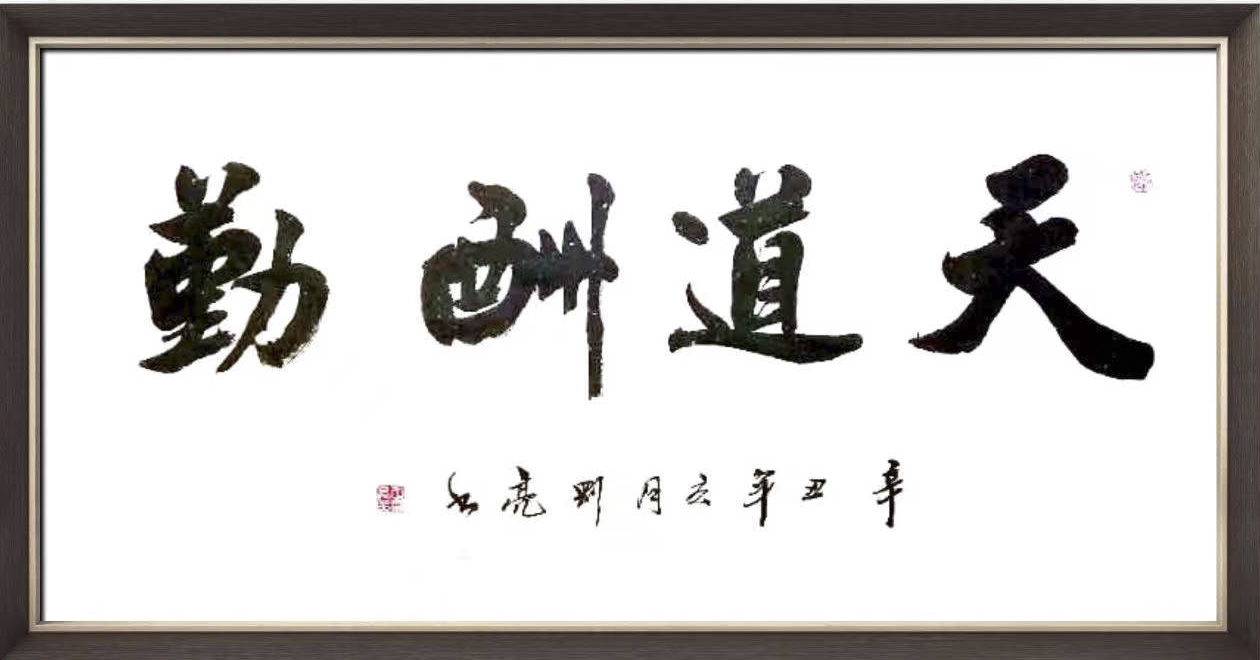 天道酬勤
辛丑年亥月 亮书